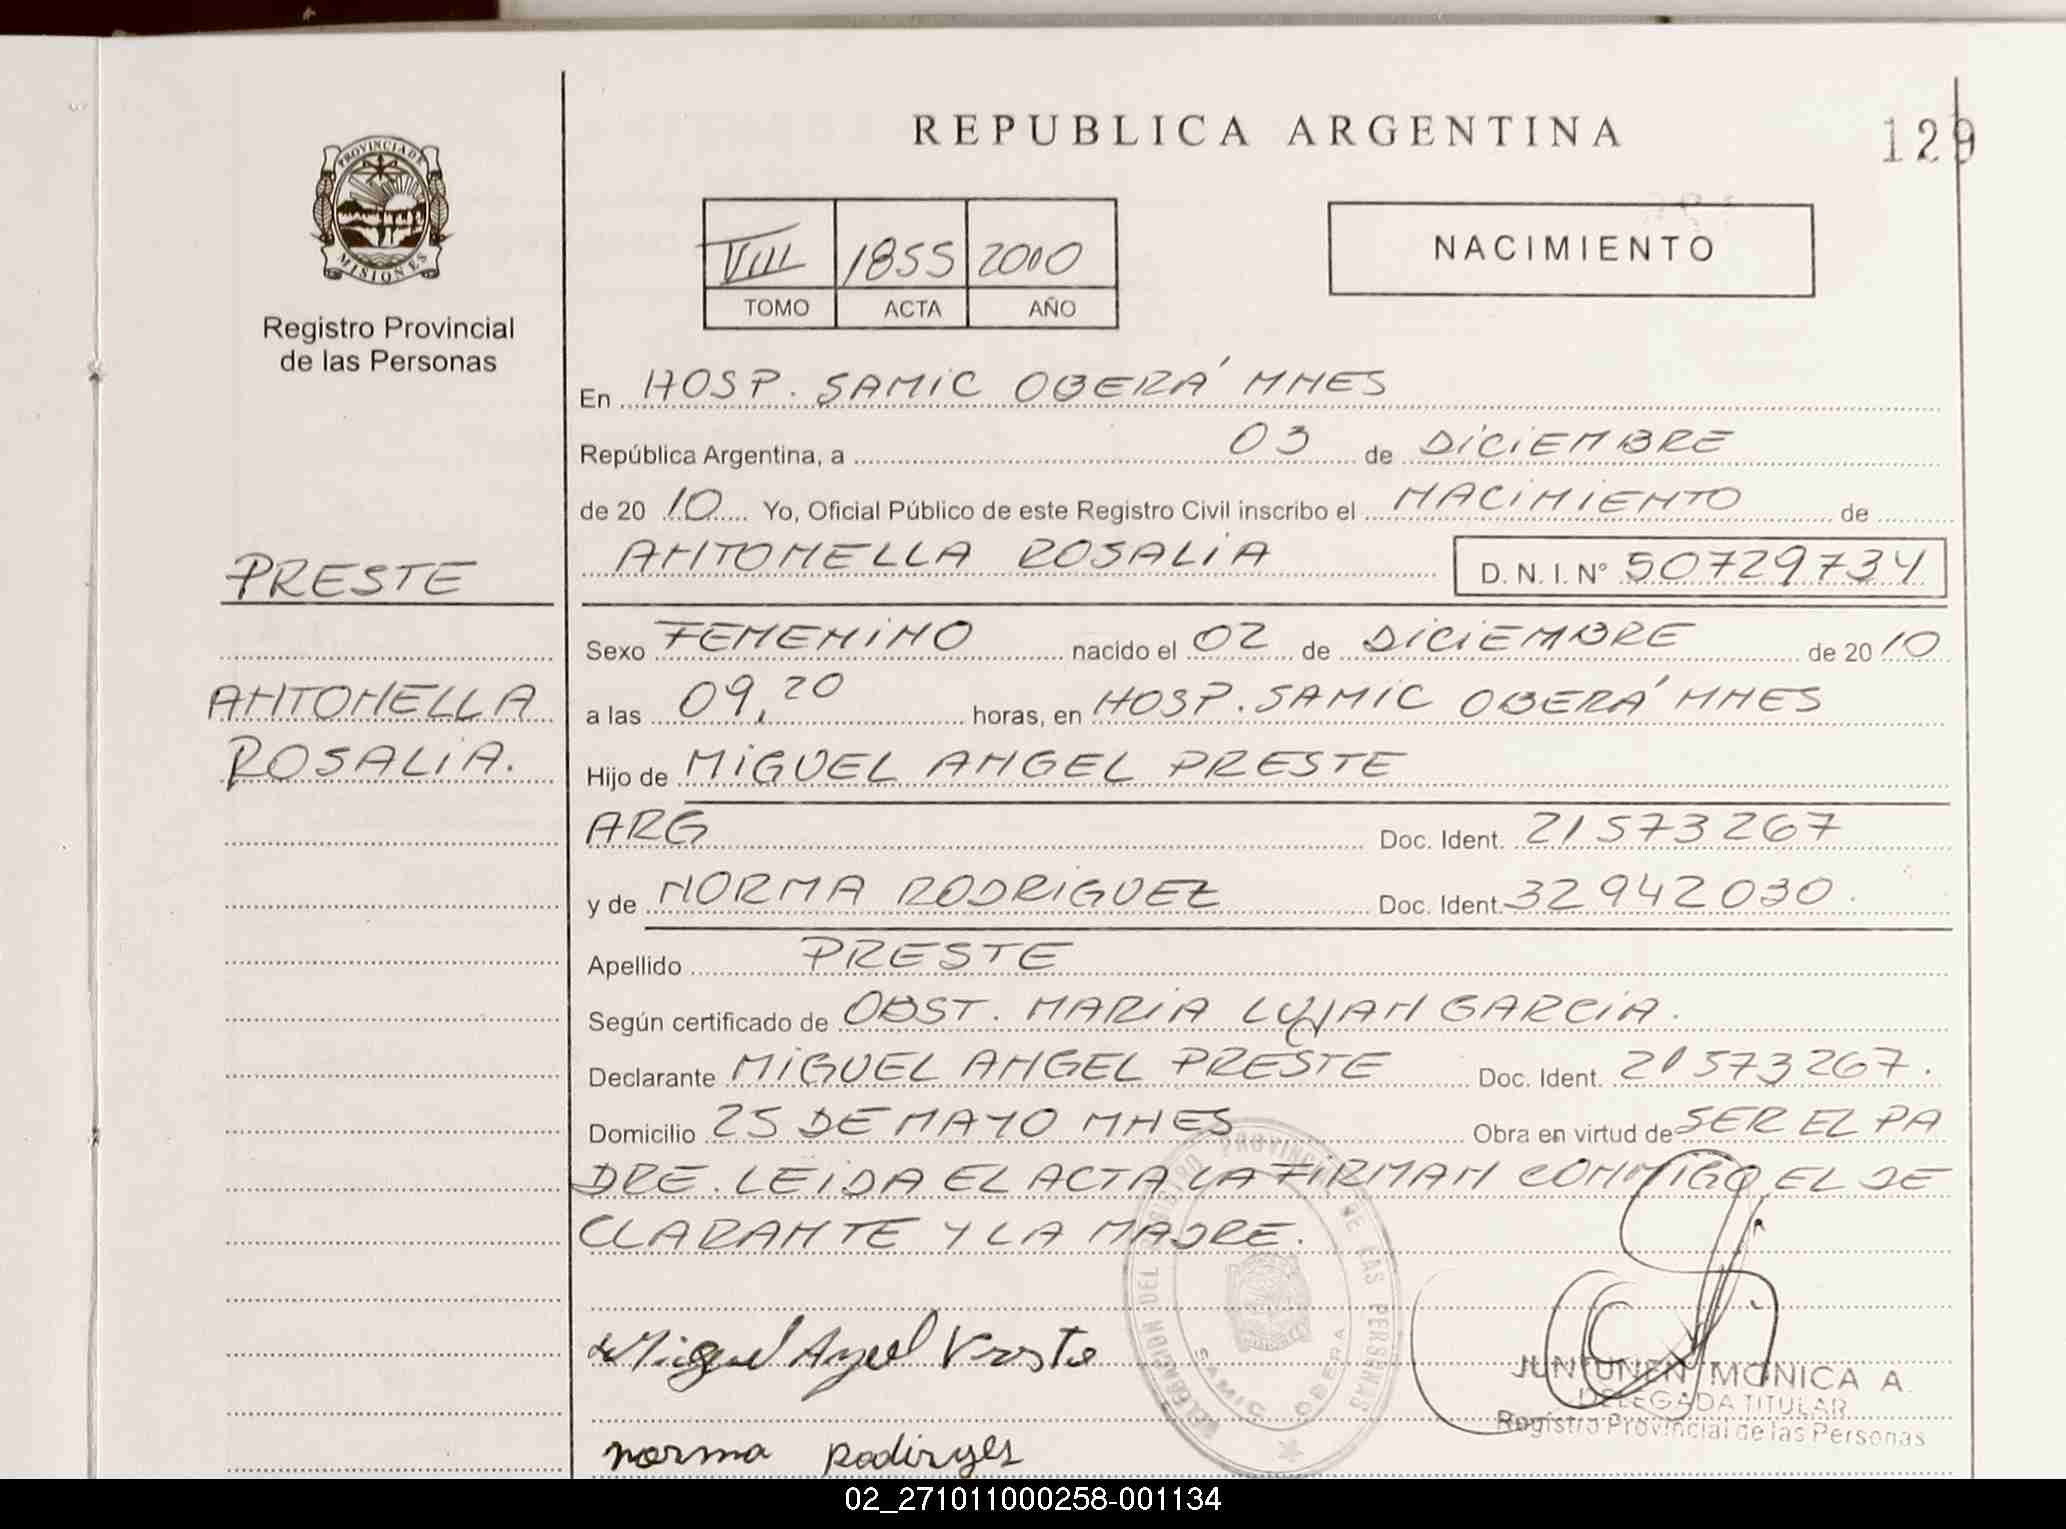 REPUBLICA ARGENTINA
129
PROVINCIA DE MISIONES
Registro Provincial
de las Personas
VIII 1855 2010
TOMO ACTA AÑO
NACIMIENTO
En HOSP. SAMIC OBERÁ MNES
República Argentina, a 03 de DICIEMBRE
de 20 10 Yo, Oficial Público de este Registro Civil inscribo el NACIMIENTO de
PRESTE
ANTONELLA ROSALIA D. N. I. N° 50729734
Sexo FEMENINO nacido el 02 de DICIEMBRE de 20 10
ANTONELLA
a las 09,20 horas, en HOSP. SAMIC OBERÁ MNES
ROSALIA.
Hijo de MIGUEL ANGEL PRESTE
ARG Doc. Ident. 21573267
y de NORMA RODRIGUEZ Doc. Ident. 32942030.
Apellido PRESTE
Según certificado de OBST. MARIA LUJAN GARCIA.
Declarante MIGUEL ANGEL PRESTE Doc. Ident. 21573267.
Domicilio 25 DE MAYO MNES Obra en virtud de SER EL PA
DRE. LEIDA EL ACTA LA FIRMAN CONMIGO EL DE
CLARANTE Y LA MADRE.
DELEGACION DEL REGISTRO PROVINCIAL DE LAS PERSONAS
SAMIC OBERA
Miguel Angel
JUNTUNEN MONICA A.
DELEGADA TITULAR
Registro Provincial de las Personas
norma
02_271011000258-001134